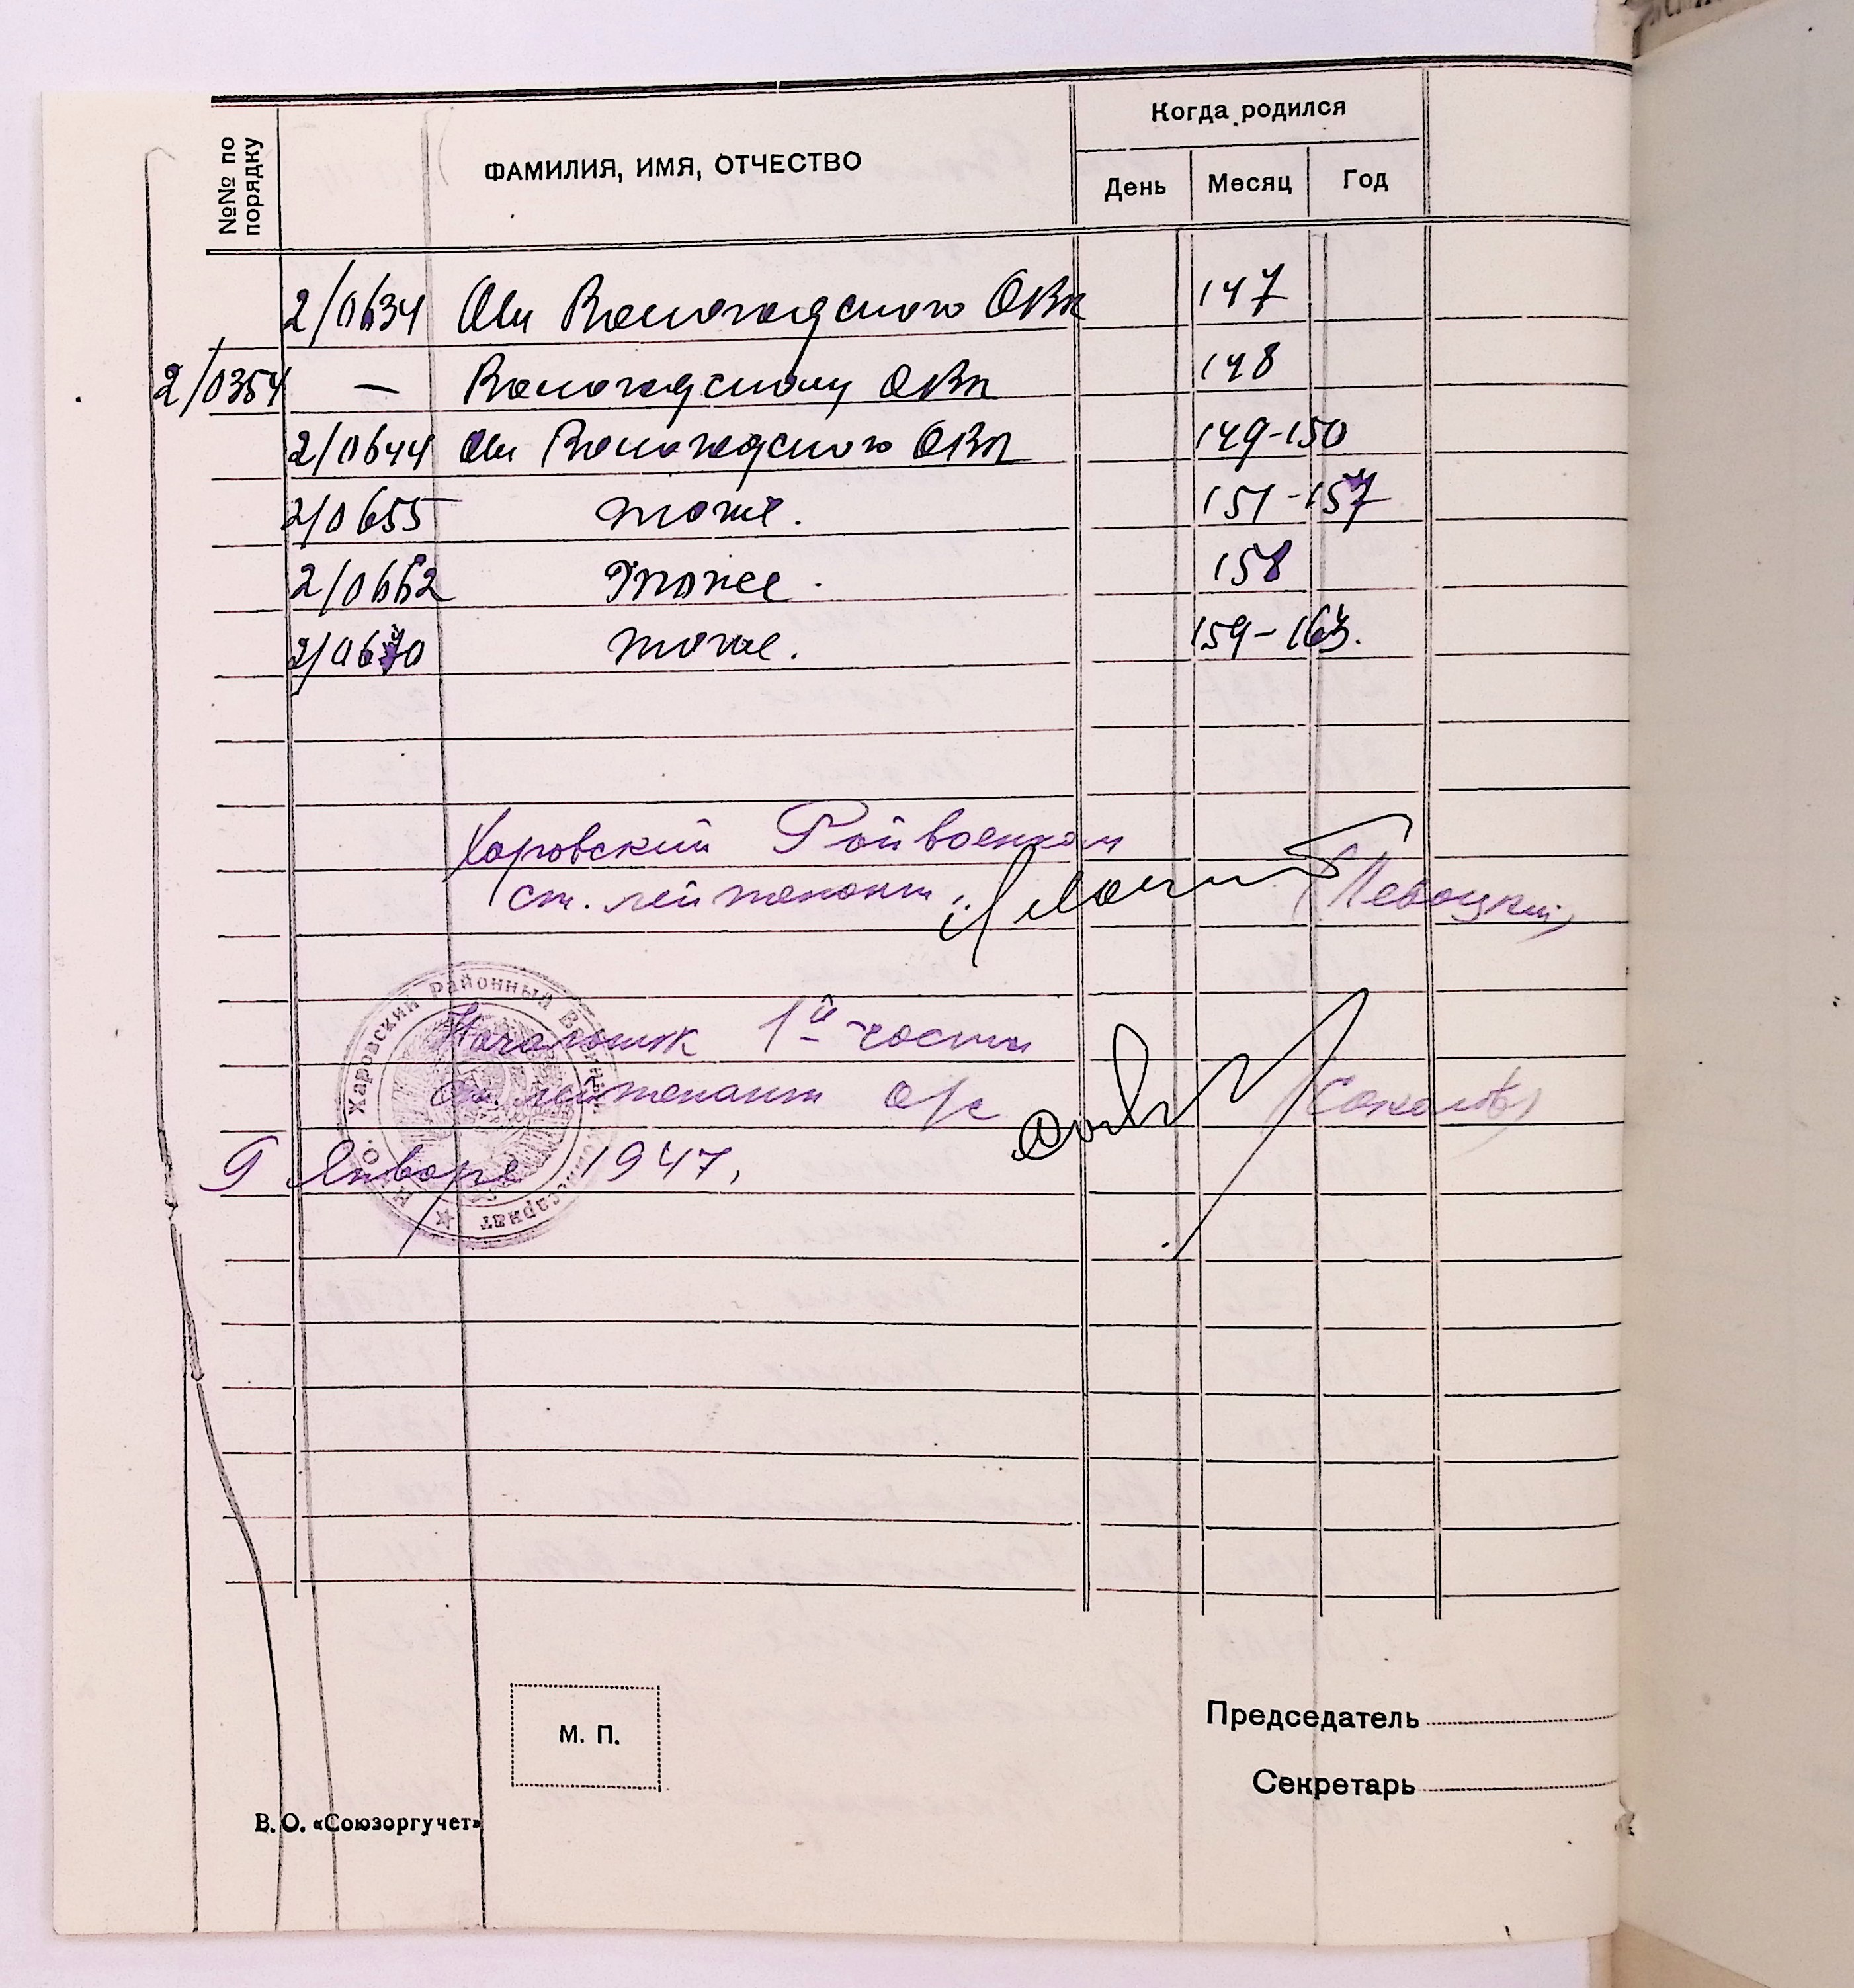 №№ по порядку
ФАМИЛИЯ, ИМЯ, ОТЧЕСТВО
Когда родился
День Месяц Год
2/0634 Вологодского ОВК 147
2/0354 — Вологодскому ОВК 148
2/0644 Вологодского ОВК 149-150
2/0655 тоже. 151-157
2/0662 Тоже. 158
2/0670 тоже. 159-163.
Харовский Райвоенком
ст. лейтенант
Начальник 1й части
ст. лейтенант а/с (Соколов)
Января 1947.
Харовский Районный Военный Комиссариат
М. П.
Председатель
Секретарь
В. О. «Союзоргучет»